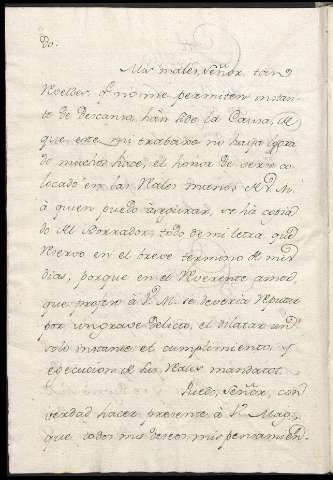 do.
Mis males, señor, tan
Rebeldes, q nome permiten instan-
te de descanso, hàn sido la Causa, de
que este mi trabaxo no haya logra
do muchos hace, el honor de verse co
locado en las Reales manos de V. M.
à quien puedo àsegurar, se hà copia
do del Borrador, todo de mi letra que
Reservo en el breve termino de mis
dias, porque en el Reverente amor,
que profeso à V. M. se deveria Reputar
por un grave Delicto, el dilatar un
solo instante el cumplimiento, y
egecucion de sus Reales mandatos.
Puedo, señor, con
verdad hacer presente à V. Mag.
que todos mis deseos, mis pensamien-